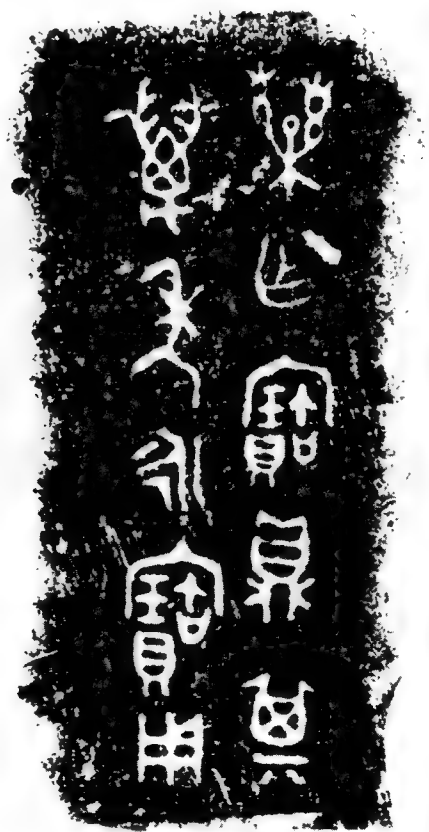 乍寶鼎其
萬年永寶用